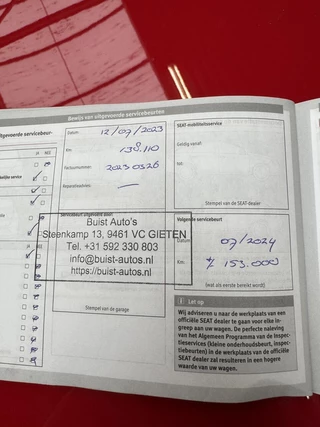 Bewijs van uitgevoerde servicebeurten
uitgevoerde servicebeur-
JA NEE
Datum 12/07/2023
Km. 138.110
Factuurnummer 20230326
Reparatieadvies —
Servicebeurt uitgevoerd door:
Buist Auto's
Steenkamp 13, 9461 VC GIETEN
Tel. +31 592 330 803
info@buist-autos.nl
https://buist-autos.nl
Stempel van de garage
SEAT-mobiliteitsservice
Geldig vanaf:
tot:
Stempel van de SEAT-dealer
Volgende servicebeurt
Datum 07/2024
Km. 153.000
(wat als eerste bereikt wordt)
i Let op
Wij adviseren u naar de werkplaats van een
officiële SEAT dealer te gaan voor elke in-
greep aan uw wagen. De perfecte naleving
van het Algemeen Programma van de Inspec-
tieservices (kleine onderhoudsbeurt, inspec-
tiebeurten) in de werkplaats van de officiële
SEAT dealer zal resulteren in een hogere
waarde van uw wagen.